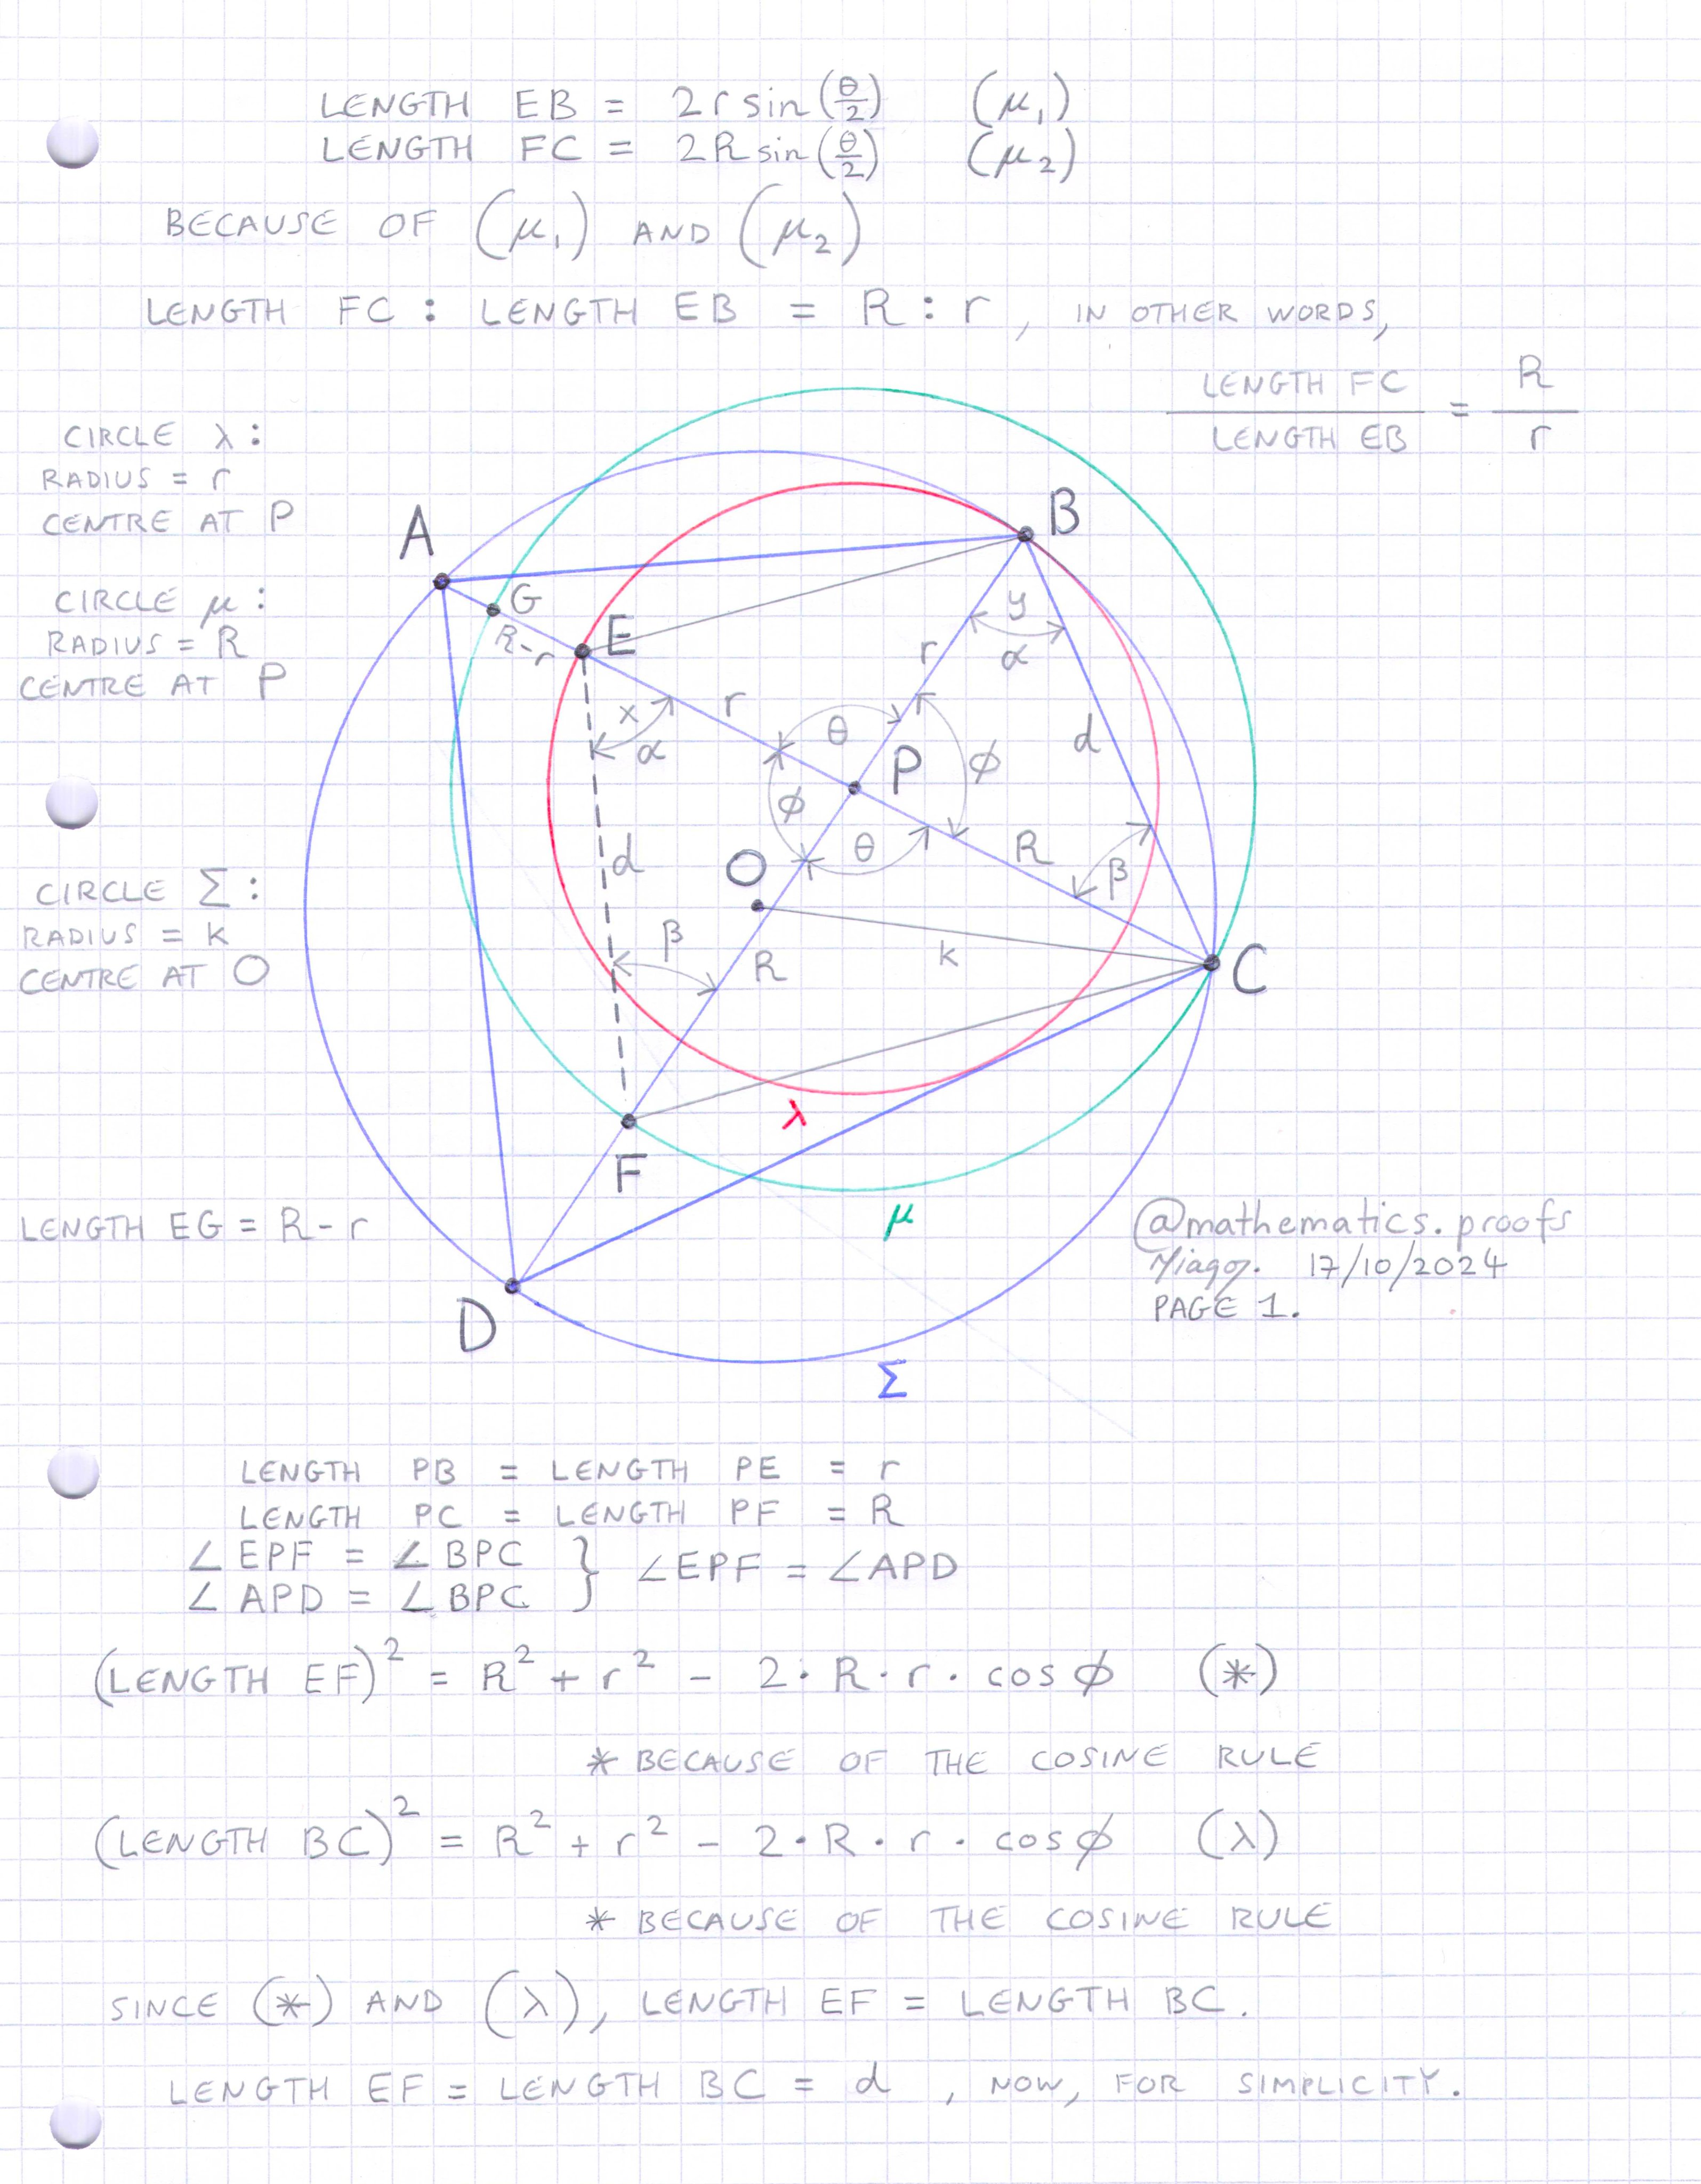 LENGTH EB = 2r sin(θ/2) (μ₁)
LENGTH FC = 2R sin(θ/2) (μ₂)
BECAUSE OF (μ₁) AND (μ₂)
LENGTH FC : LENGTH EB = R : r , IN OTHER WORDS,
LENGTH FC / LENGTH EB = R / r
CIRCLE λ :
RADIUS = r
CENTRE AT P
CIRCLE μ :
RADIUS = R
CENTRE AT P
CIRCLE Σ :
RADIUS = k
CENTRE AT O
LENGTH EG = R - r
A
B
G
R-r
E
y
α
r
x
α
r
θ
P
φ
d
φ
θ
R
β
O
d
k
β
R
C
F
λ
μ
D
Σ
@mathematics.proofs
17/10/2024
PAGE 1.
LENGTH PB = LENGTH PE = r
LENGTH PC = LENGTH PF = R
∠ EPF = ∠ BPC
∠ APD = ∠ BPC } ∠EPF = ∠APD
(LENGTH EF)² = R² + r² - 2·R·r·cosφ (*)
* BECAUSE OF THE COSINE RULE
(LENGTH BC)² = R² + r² - 2·R·r·cosφ (λ)
* BECAUSE OF THE COSINE RULE
SINCE (*) AND (λ), LENGTH EF = LENGTH BC.
LENGTH EF = LENGTH BC = d , NOW, FOR SIMPLICITY.